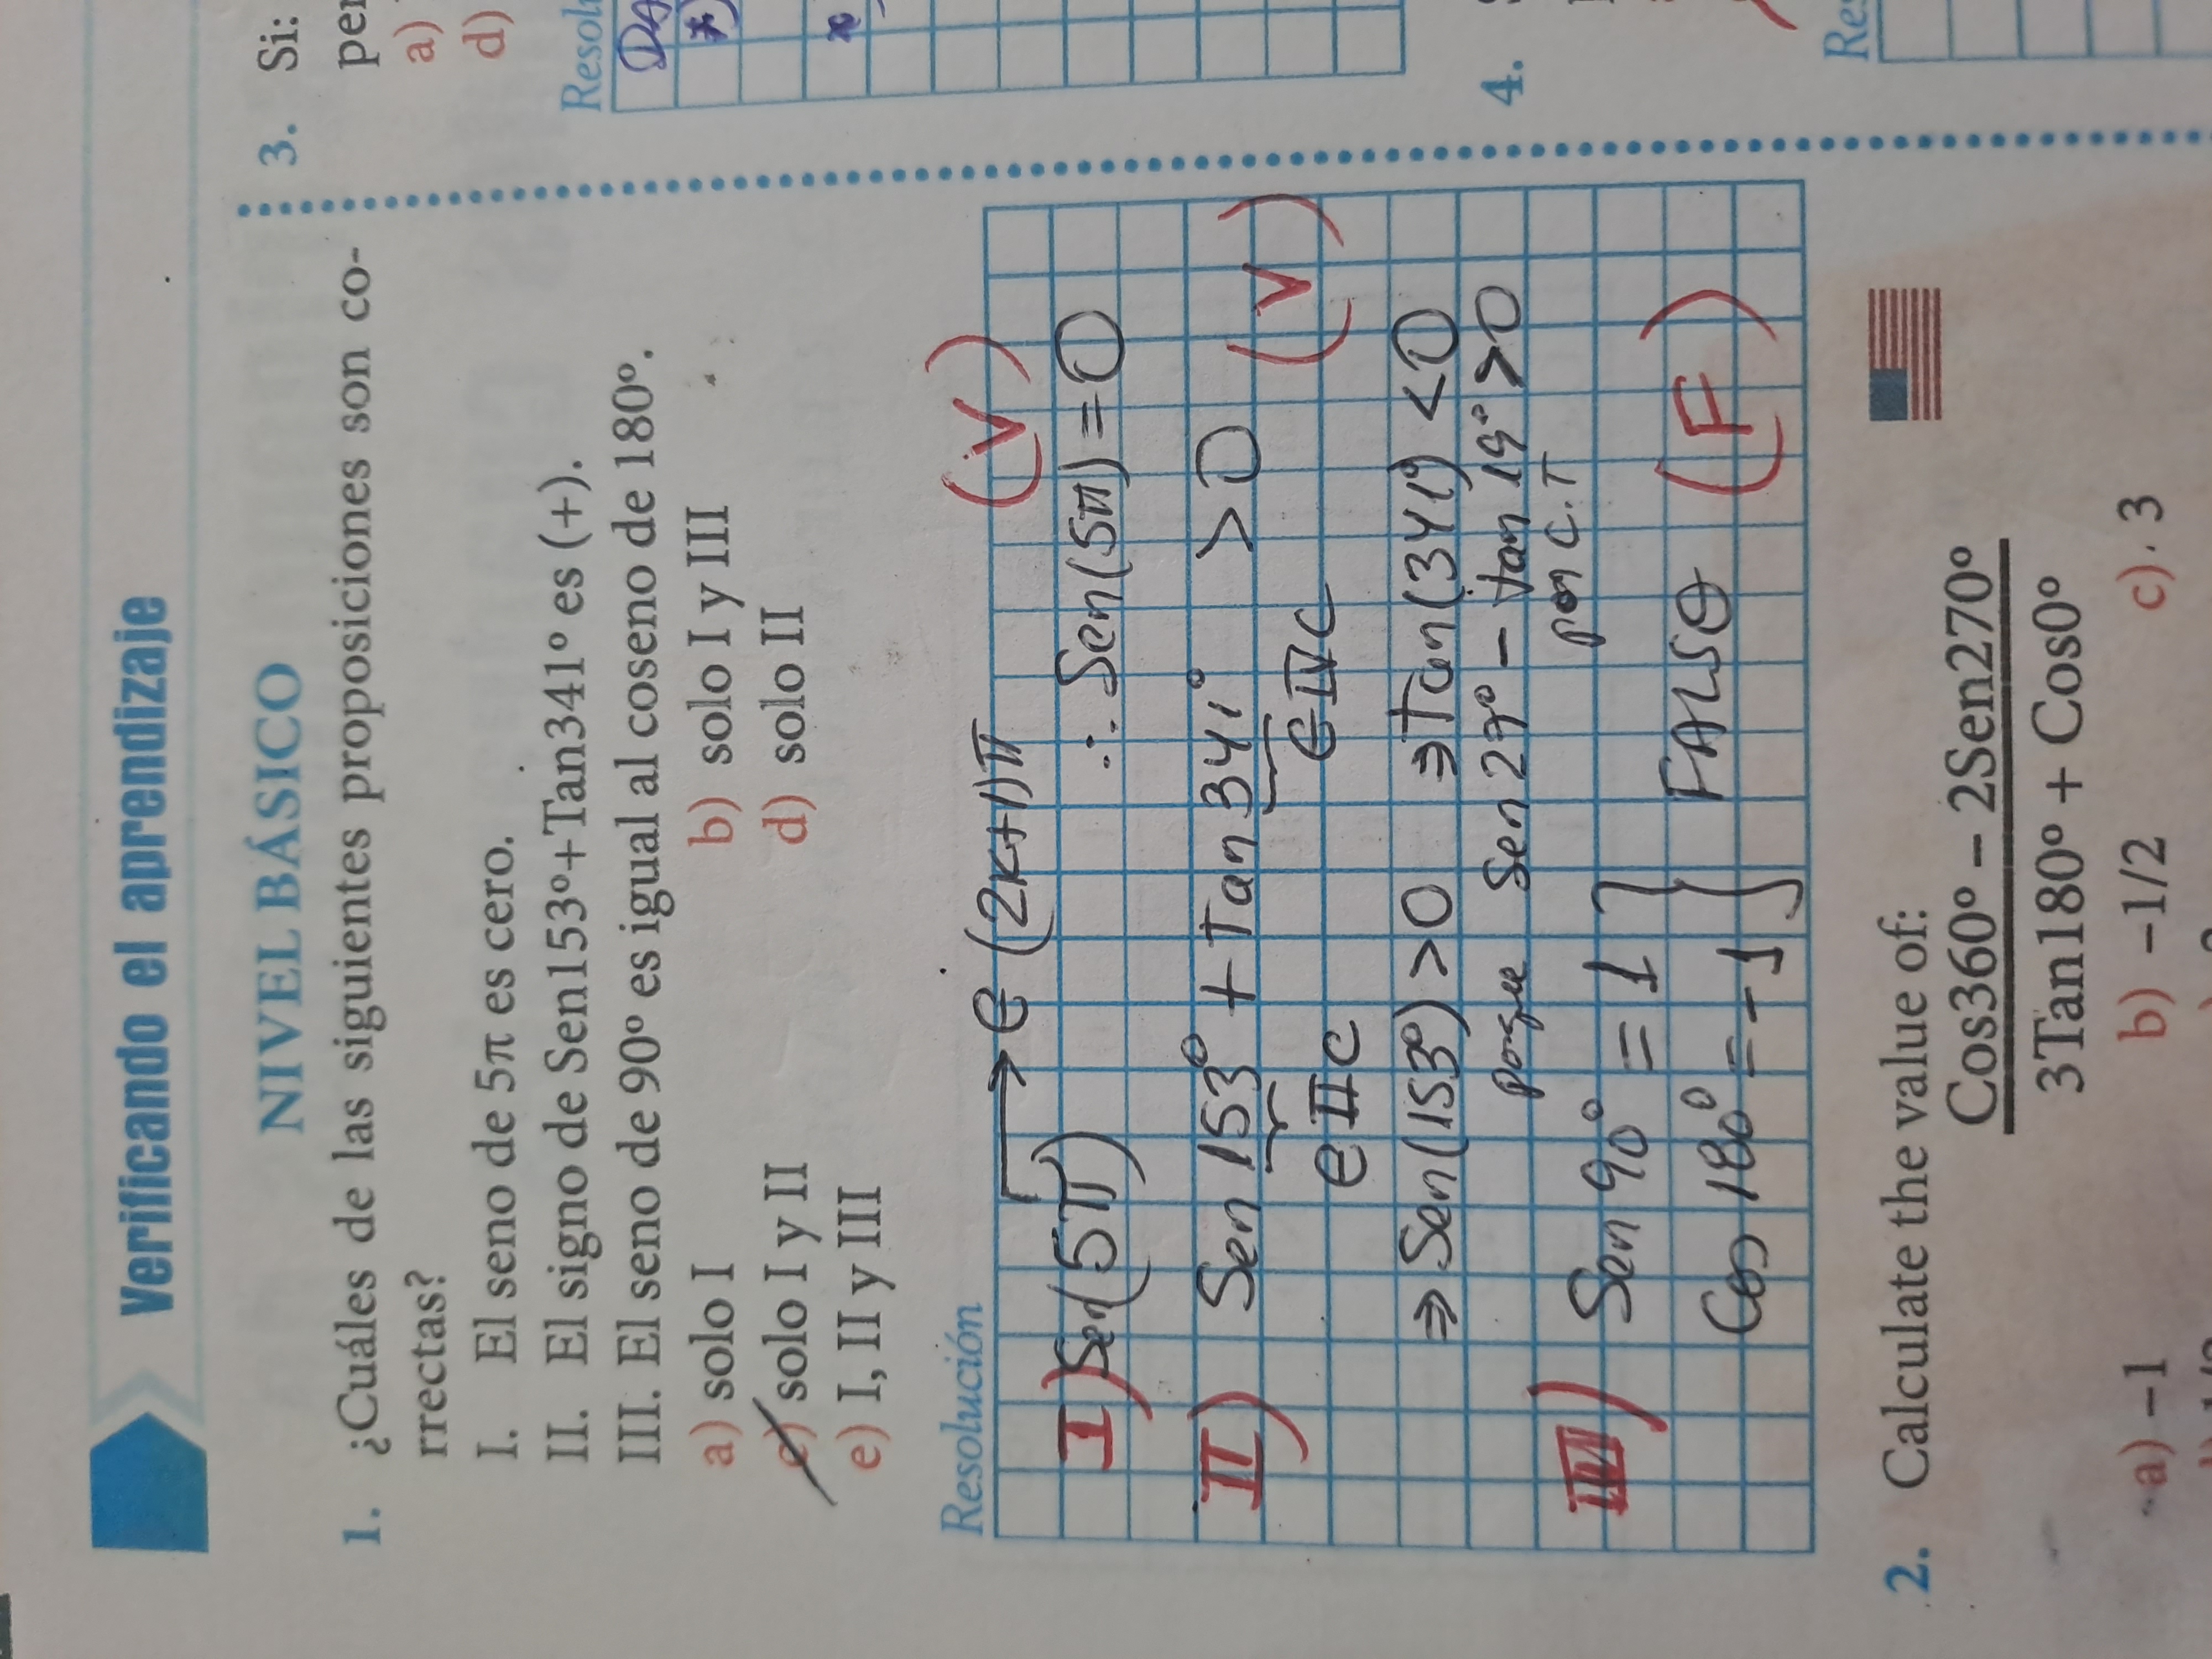 Verificando el aprendizaje
NIVEL BÁSICO
1. ¿Cuáles de las siguientes proposiciones son co-
rrectas?
I. El seno de 5π es cero.
II. El signo de Sen153º+Tan341º es (+).
III. El seno de 90º es igual al coseno de 180º.
a) solo I b) solo I y III
c) solo I y II d) solo II
e) I, II y III
Resolución
∈ (2k+1)π (V)
I) Sen(5π) ∴ Sen(5π) = 0
II) Sen 153° + Tan 341° > 0 (V)
∈ IIC ∈ IVC
⇒ Sen(153°) > 0 ⇒ Tan(341°) < 0
porque Sen 27° − tan 19° > 0
por C.T
III) Sen 90° = 1
FALSO (F)
Cos 180° = -1
2. Calculate the value of:
Cos360º – 2Sen270º
3Tan180º + Cos0º
a) –1 b) –1/2 c) 3
3. Si:
a)
d)
DA
4.